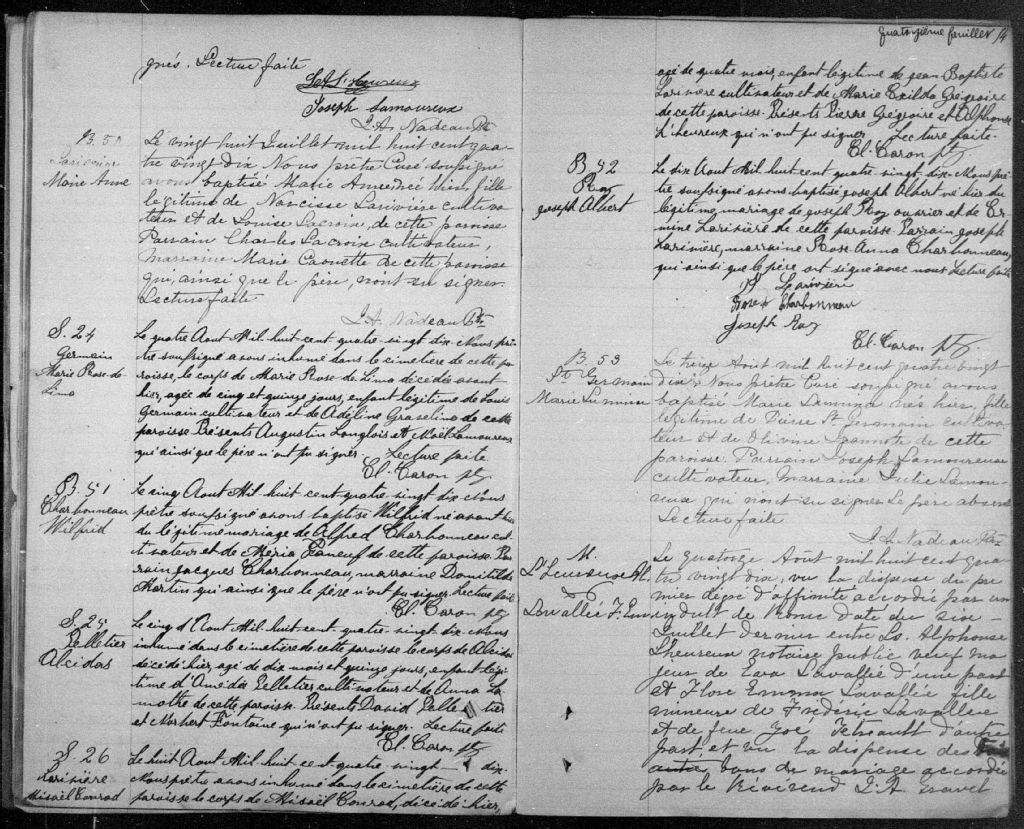 gnés. Lecture faite
Joseph Lamoureux
J. A. Nadeau Ptre
B. 50
Larivière
Marie Anne
Le vingt huit Juillet mil huit cent qua-
tre vingt dix Nous prêtre Curé soussigné
avons baptisé Marie Anne née hier, fille
légitime de Narcisse Larivière cultiva-
teur et de Louise Lacroix, de cette paroisse
Parrain Charles Lacroix cultivateur,
Marraine Marie Caouette de cette paroisse
qui, ainsi que le père, n'ont su signer.
Lecture faite
J. A. Nadeau Ptre
S. 24
Germain
Marie Rose de
Lima
Le quatre Aout Mil-huit-cent quatre-vingt dix Nous prê-
tre soussigné avons inhumé dans le cimetière de cette pa-
roisse, le corps de Marie Rose de Lima décédée avant
hier, agée de cinq et quinze jours, enfant légitime de Louis
Germain cultivateur et de Adéline Graseline de cette
paroisse Présents Augustin Langlois et Noël Lamoureux
qui ainsi que le père n'ont pu signer. Lecture faite
El. Caron ptre
B. 51
Charbonneau
Wilfrid
Le cinq Aout Mil-huit-cent-quatre-vingt dix Nous
prêtre soussigné avons baptisé Wilfrid né avant hier
du légitime mariage de Alfred Charbonneau cul-
tivateur et de Méria Phaneuf de cette paroisse. Par-
rain Jacques Charbonneau, marraine Domitilde
Martin qui ainsi que le père n'ont pu signer. Lecture faite
El. Caron ptre
S. 25
Pelletier
Alcidas
Le cinq d'Aout Mil-huit-cent-quatre-vingt-dix-Nous
inhumé dans le cimetière de cette paroisse le corps de Alcidas
décédé hier, agé de dix mois et quinze jours, enfant légi-
time d'Amédée Pelletier, cultivateur et de Anna La-
mothe de cette paroisse. Présents David Pelletier
et Norbert Fontaine qui n'ont pu signer. Lecture faite
El. Caron ptre
S. 26
Larivière
Misaël Conrad
Le huit Aout Mil-huit-cent-quatre vingt-dix-
Nous prêtre avons inhumé dans le cimetière de cette
paroisse le corps de Misaël Conrad, décédé hier,
quatorzième feuillet 14
agé de quatre mois, enfant légitime de Jean Baptiste
Larivière cultivateur et de Marie Exilda Grégoire
de cette paroisse. Présents Pierre Grégoire et Alphonse
L'heureux qui n'ont pu signer. Lecture faite.
El. Caron ptre
B. 52
Roy
Joseph Albert
Le dix Aout Mil huit-cent quatre-vingt-dix-Nous prê-
tre soussigné avons baptisé Joseph Albert né hier du
légitime mariage de Joseph Roy ouvrier et de Er-
mine Larivière de cette paroisse. Parrain Joseph
Larivière, marraine Rose Anna Charbonneau
qui ainsi que le père ont signé avec nous Lecture faite
Larivière
Charbonneau
Joseph Roy
El. Caron ptre
B. 53
St Germain
Marie
Le treize Août mil huit cent quatre vingt
dix Nous prêtre Curé soussigné avons
baptisé Marie née hier, fille
légitime de Pierre St Germain cultiva-
teur et de Olivine Jeannote de cette
paroisse. Parrain Joseph Lamoureux
cultivateur, Marraine Julie Lamou-
reux qui n'ont su signer. Le père absent
Lecture faite
J. A. Nadeau Ptre
M.
L'Heureux Al.
Lavallée F. Emma
Le quatorze Août mil huit cent qua-
tre vingt dix, vu la dispense du pre-
mier degré d'affinité accordée par un
indult de Rome daté du six
Juillet dernier entre Ls. Alphonse
L'heureux notaire public veuf ma-
jeur de Eva Lavallée d'une part
et Flore Emma Lavallée fille
mineure de Frédéric Lavallée
et de feue Zoé Tetreault d'autre
part et vu la dispense des
bans de mariage accordée
par le Révérend J. A. Gravel